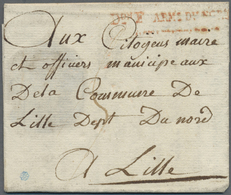 ARM. DU NORD
Aux Citoyens maire
et officiers municipaux
De la Commune De
Lille Dept Du nord
A Lille